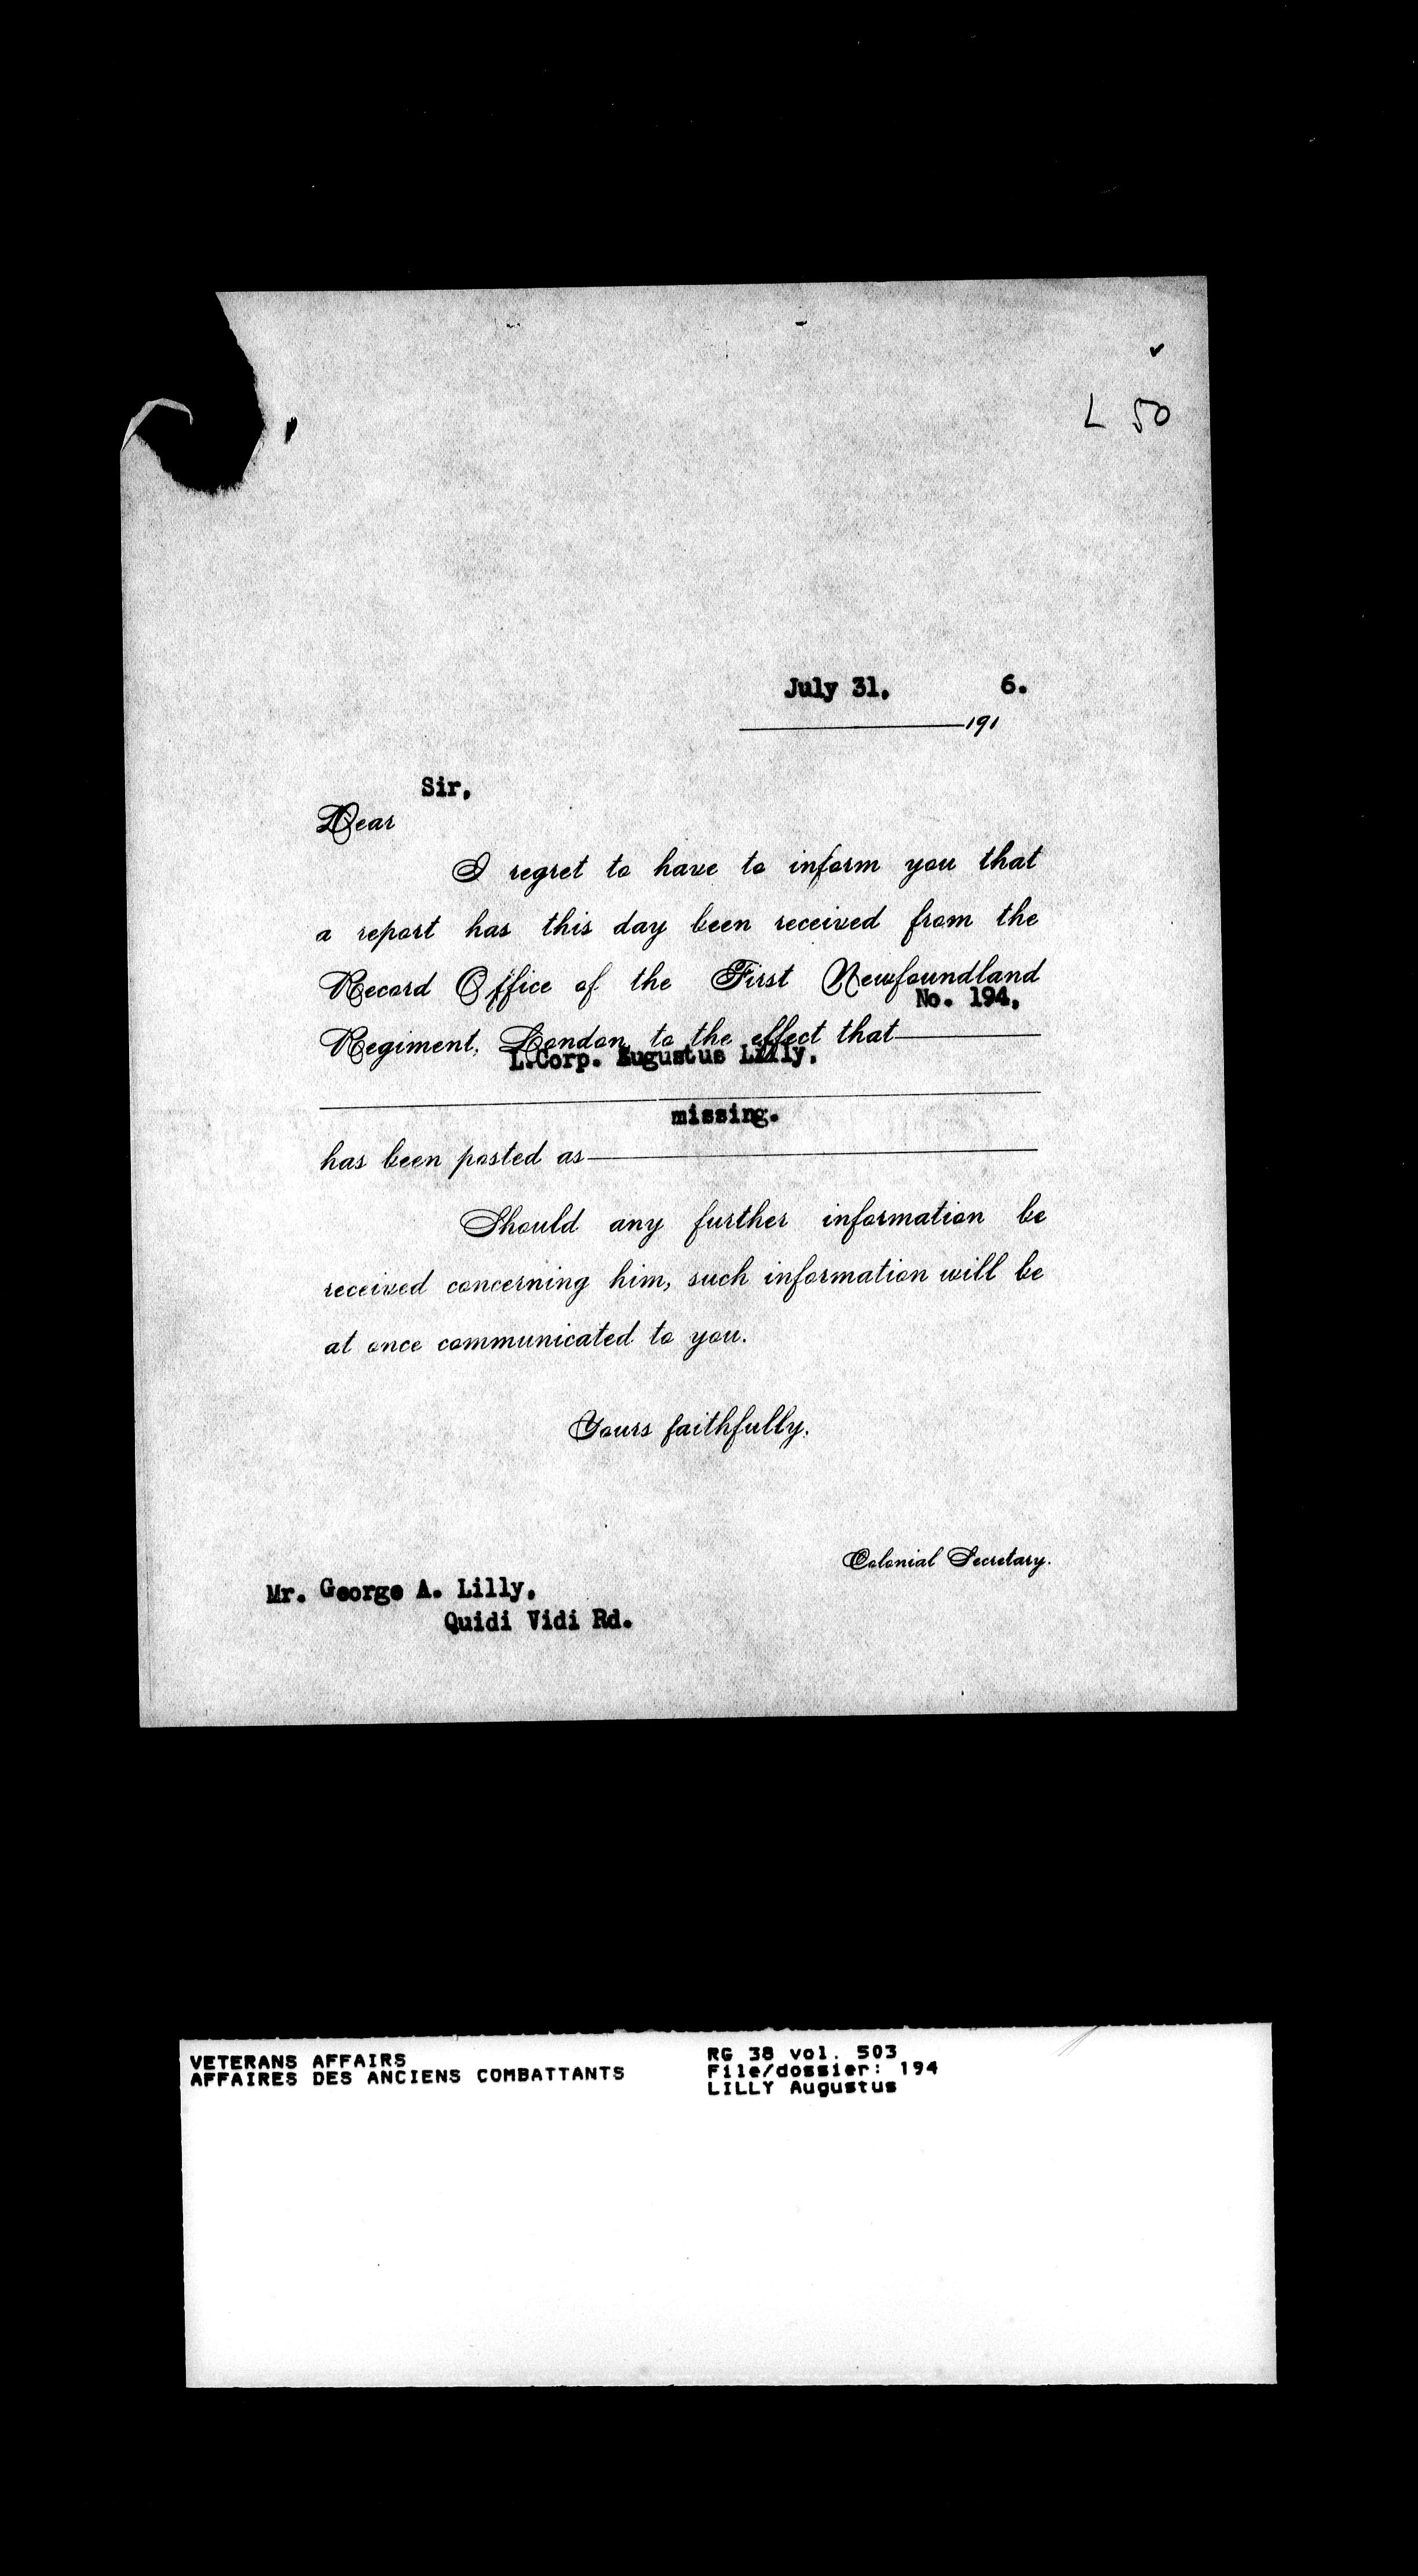 L 50
July 31, 6.
191
Sir,
Dear
I regret to have to inform you that
a report has this day been received from the
Record Office of the First Newfoundland
No. 194,
Regiment, London to the effect that
L.Corp. Augustus Lilly,
missing.
has been posted as
Should any further information be
received concerning him, such information will be
at once communicated to you.
Yours faithfully,
Colonial Secretary.
Mr. George A. Lilly,
Quidi Vidi Rd.
VETERANS AFFAIRS
AFFAIRES DES ANCIENS COMBATTANTS
RG 38 vol. 503
File/dossier: 194
LILLY Augustus